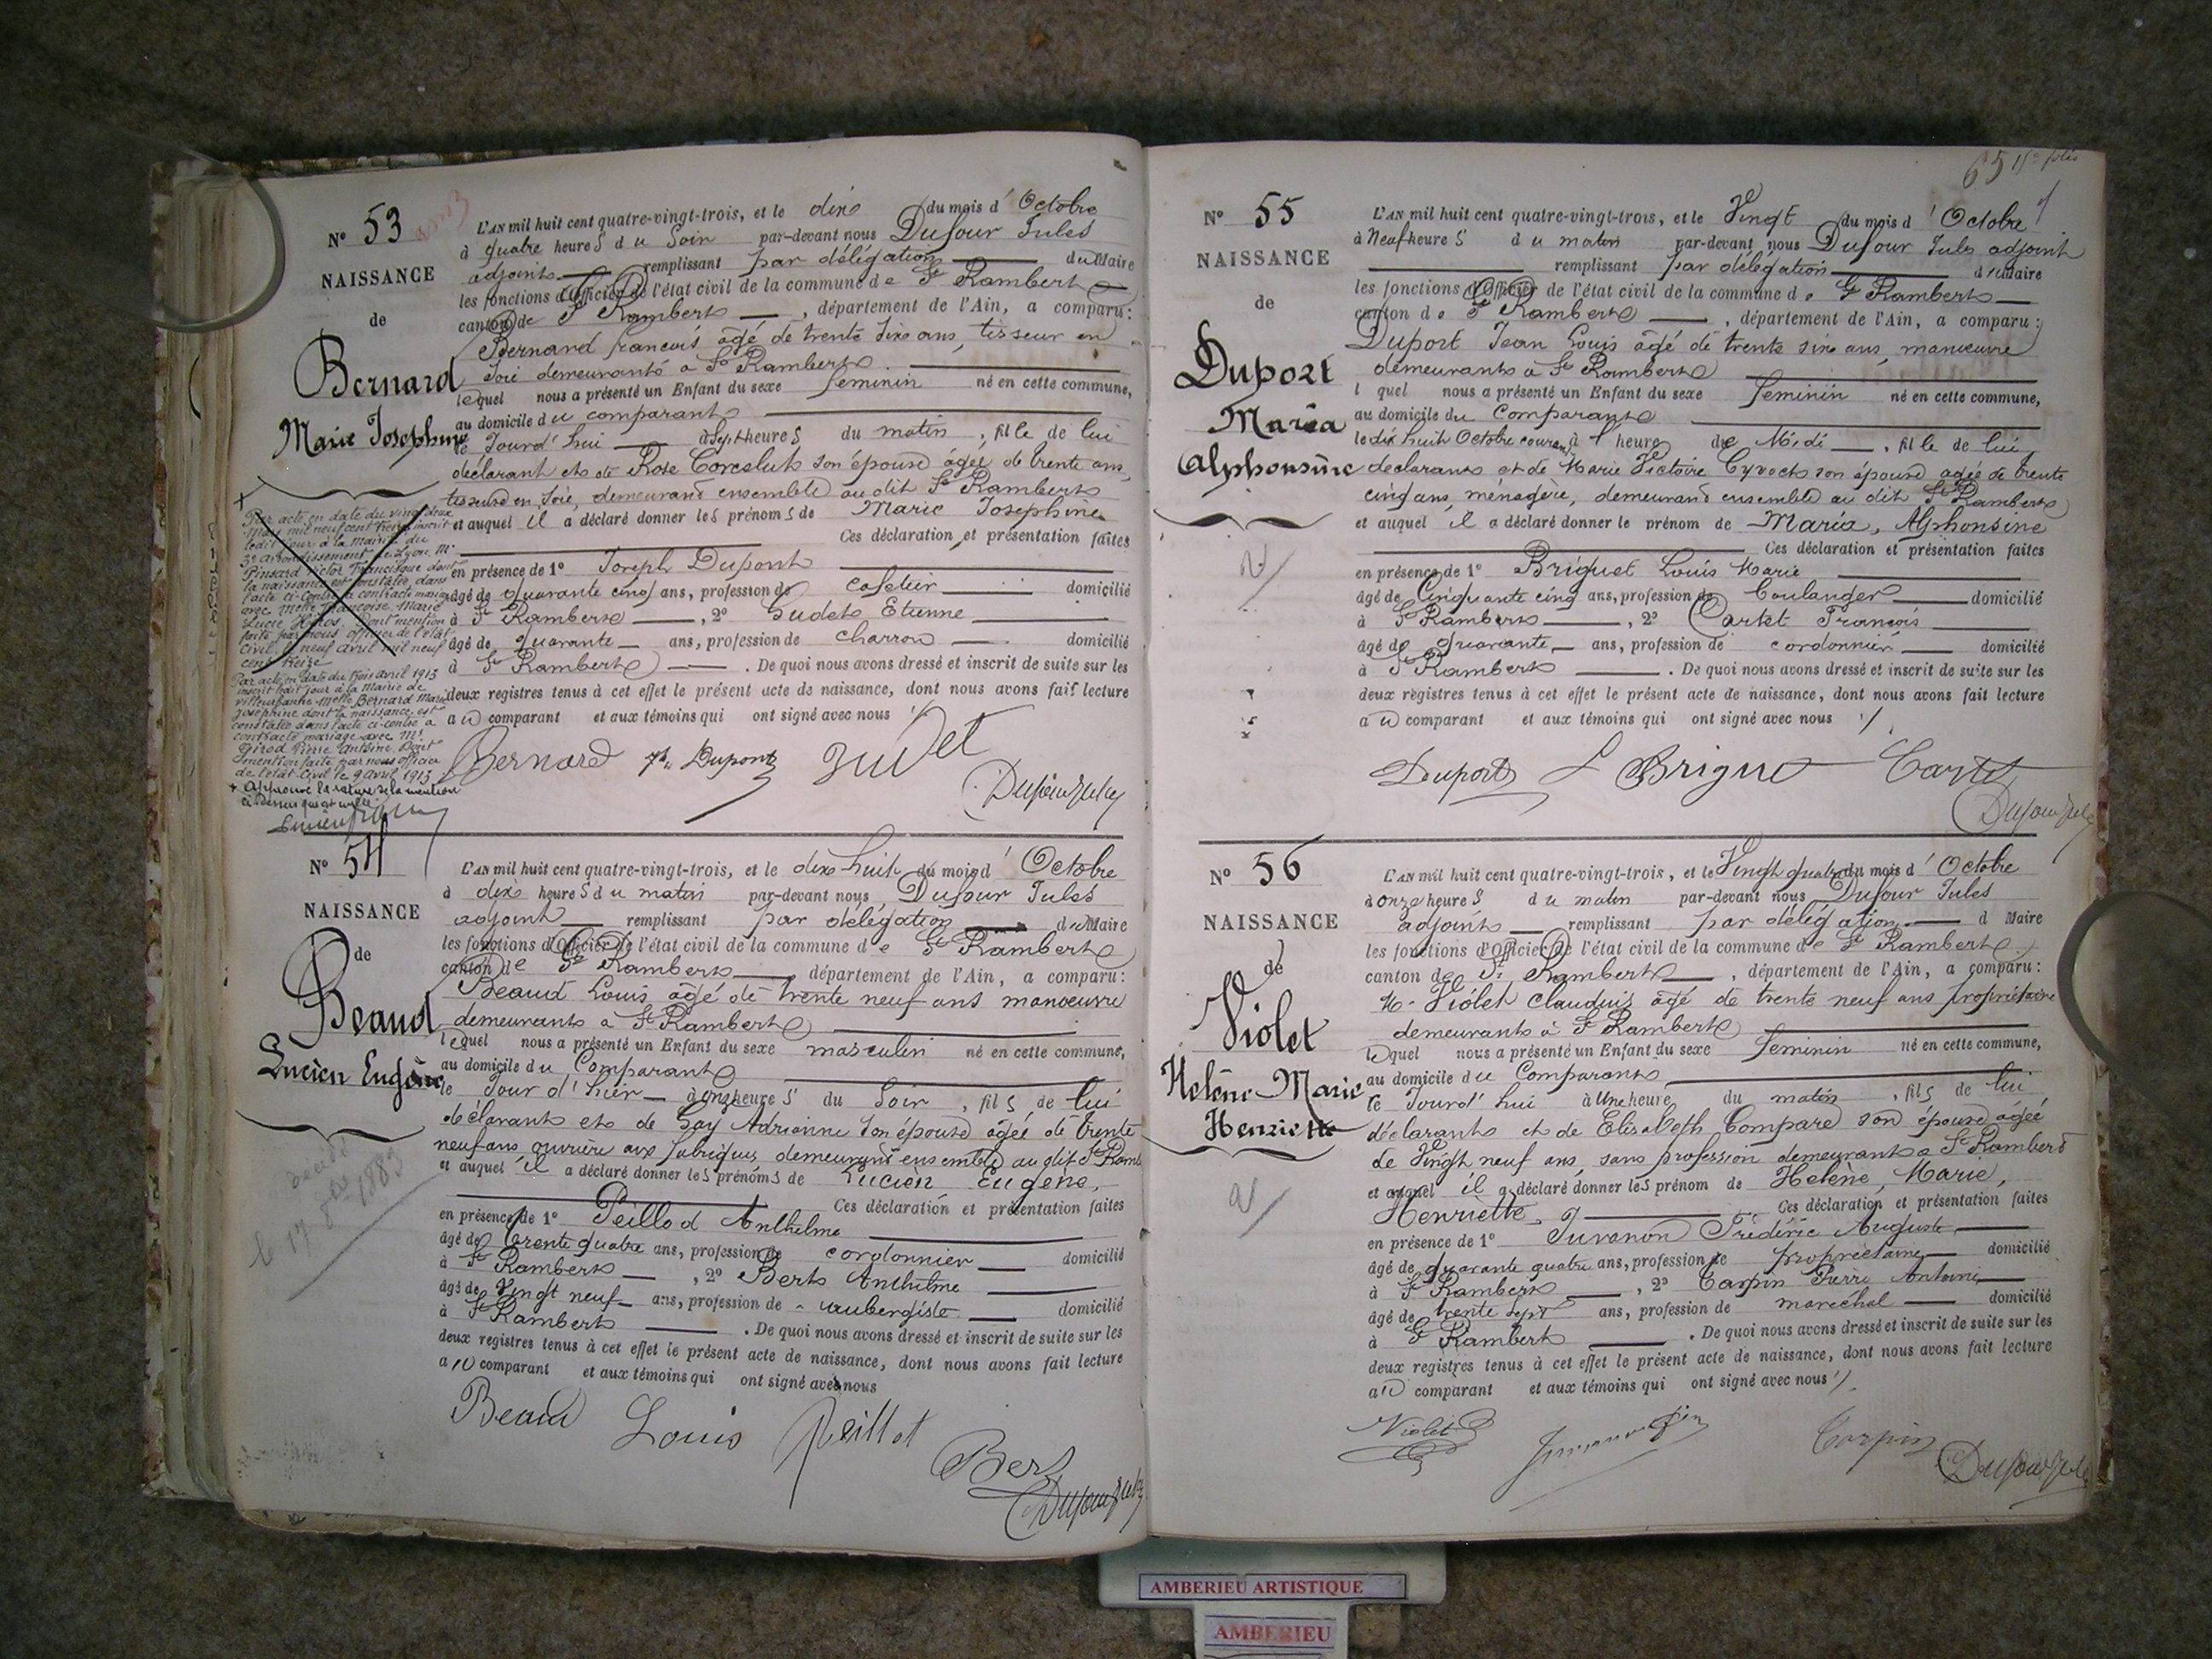 N° 53
NAISSANCE
de
Bernard
Marie Josephine
L'AN mil huit cent quatre-vingt-trois, et le dix du mois d'Octobre
à quatre heureS du Soir par-devant nous Dufour Jules
adjoint remplissant par délégation du Maire
les fonctions d'Officier de l'état civil de la commune de St Rambert
canton de St Rambert, département de l'Ain, a comparu:
Bernard francois âgé de trente six ans, tisseur en
Soie demeurant à St Rambert
lequel nous a présenté un Enfant du sexe feminin né en cette commune,
au domicile du comparant
le Jourd'hui à Sept heureS du matin, fille de lui
déclarant et de Rose son épouse âgée de trente ans,
tisseuse en Soie, demeurant ensemble au dit St Rambert
et auquel il a déclaré donner leS prénomS de Marie Josephine
Ces déclaration et présentation faites
en présence de 1° Joseph Dupont
âgé de quarante cinq ans, profession de cafetier domicilié
à St Rambert, 2° Gudet Etienne
âgé de quarante ans, profession de charron domicilié
à St Rambert. De quoi nous avons dressé et inscrit de suite sur les
deux registres tenus à cet effet le présent acte de naissance, dont nous avons fait lecture
au comparant et aux témoins qui ont signé avec nous
Bernard Dupont Gudet
Dufour Jules
Par acte en date du vingt deux
Mars mil neuf cent treize inscrit
ledit jour à la mairie du
3e arrondissement de Lyon Mr
Pinsard Victor Francisque dont
la naissance est constatée dans
l'acte ci-contre a contracté mariage
avec Melle Françoise Marie
Lucie. Dont mention
faite par nous officier de l'état
Civil le neuf avril mil neuf
cent treize
Par acte en date du trois avril 1913
inscrit ledit jour à la Mairie de
Villeurbanne Melle Bernard Marie
Josephine dont la naissance est
constatée dans l'acte ci-contre a
contracté mariage avec Mr
Girod Pierre Antoine. Dont
mention faite par nous officier
de l'état-Civil le 9 avril 1913
+ Approuvé la rature de la mention
ci-dessus qui est nulle
N° 54
NAISSANCE
de
Beaud
Lucien Eugène
L'AN mil huit cent quatre-vingt-trois, et le dix huit du mois d'Octobre
à dix heureS du matin par-devant nous Dufour Jules
adjoint remplissant par délégation du Maire
les fonctions d'Officier de l'état civil de la commune de St Rambert
canton de St Rambert, département de l'Ain, a comparu:
Beaud Louis âgé de trente neuf ans manoeuvre
demeurant à St Rambert
lequel nous a présenté un Enfant du sexe masculin né en cette commune,
au domicile du Comparant
le Jour d'hier à onze heureS du Soir, filS de lui
déclarant et de Gay Adrianne Son épouse âgée de trente
neuf ans ouvrière aux fabriques demeurant ensemble au dit St Ramb
et auquel il a déclaré donner leS prénomS de Lucien Eugène,
Ces déclaration et présentation faites
en présence de 1° Peillod Anthelme
âgé de trente quatre ans, profession de cordonnier domicilié
à St Rambert, 2° Bert Anthelme
âgé de vingt neuf ans, profession de aubergiste domicilié
à St Rambert. De quoi nous avons dressé et inscrit de suite sur les
deux registres tenus à cet effet le présent acte de naissance, dont nous avons fait lecture
au comparant et aux témoins qui ont signé avec nous
Beaud Louis Peillot
Bert
Dufour Jules
décédé
le 17 1883
65
N° 55
NAISSANCE
de
Duport
Maria
Alphonsine
L'AN mil huit cent quatre-vingt-trois, et le Vingt du mois d'Octobre
à Neuf heureS du matin par-devant nous Dufour Jules adjoint
remplissant par délégation du Maire
les fonctions d'Officier de l'état civil de la commune de St Rambert
canton de St Rambert, département de l'Ain, a comparu:
Duport Jean Louis âgé de trente six ans, manœuvre
demeurant à St Rambert
lequel nous a présenté un Enfant du sexe feminin né en cette commune,
au domicile du Comparant
le dix huit Octobre courant à 1 heure de Midi, fille de lui
déclarant et de Marie Victoire Cyvoct son épouse agée de trente
cinq ans, ménagère, demeurant ensemble au dit St Rambert
et auquel il a déclaré donner le prénom de Maria, Alphonsine
Ces déclaration et présentation faites
en présence de 1° Briguet Louis Marie
âgé de Cinquante cinq ans, profession de boulanger domicilié
à St Rambert, 2° Cartet François
âgé de quarante ans, profession de cordonnier domicilié
à St Rambert. De quoi nous avons dressé et inscrit de suite sur les
deux registres tenus à cet effet le présent acte de naissance, dont nous avons fait lecture
au comparant et aux témoins qui ont signé avec nous
Duport L Briguet Cartet
Dufour Jules
N° 56
NAISSANCE
de
Violet
Helène-Marie
Henriette
L'AN mil huit cent quatre-vingt-trois, et le Vingt quatre du mois d'Octobre
à onze heureS du matin par-devant nous Dufour Jules
adjoint remplissant par délégation d Maire
les fonctions d'Officier de l'état civil de la commune de St Rambert
canton de St Rambert, département de l'Ain, a comparu:
M. Violet Claudius âgé de trente neuf ans propriétaire
demeurant à St Rambert
lequel nous a présenté un Enfant du sexe feminin né en cette commune,
au domicile du Comparant
le Jourd'hui à Une heure du matin, filS de lui
déclarant et de Elisabeth Compare son épouse âgée
de Vingt neuf ans, sans profession demeurant a St Rambert
et auquel il a déclaré donner leS prénom de Helène, Marie,
Henriette, Ces déclaration et présentation faites
en présence de 1° Juvanon Frédéric Auguste
âgé de quarante quatre ans, profession de propriétaire domicilié
à St Rambert, 2° Carpin Pierre Antoine
âgé de trente sept ans, profession de maréchal domicilié
à St Rambert. De quoi nous avons dressé et inscrit de suite sur les
deux registres tenus à cet effet le présent acte de naissance, dont nous avons fait lecture
au comparant et aux témoins qui ont signé avec nous
Violet Carpin
Dufour Jules
AMBERIEU ARTISTIQUE
AMBERIEU